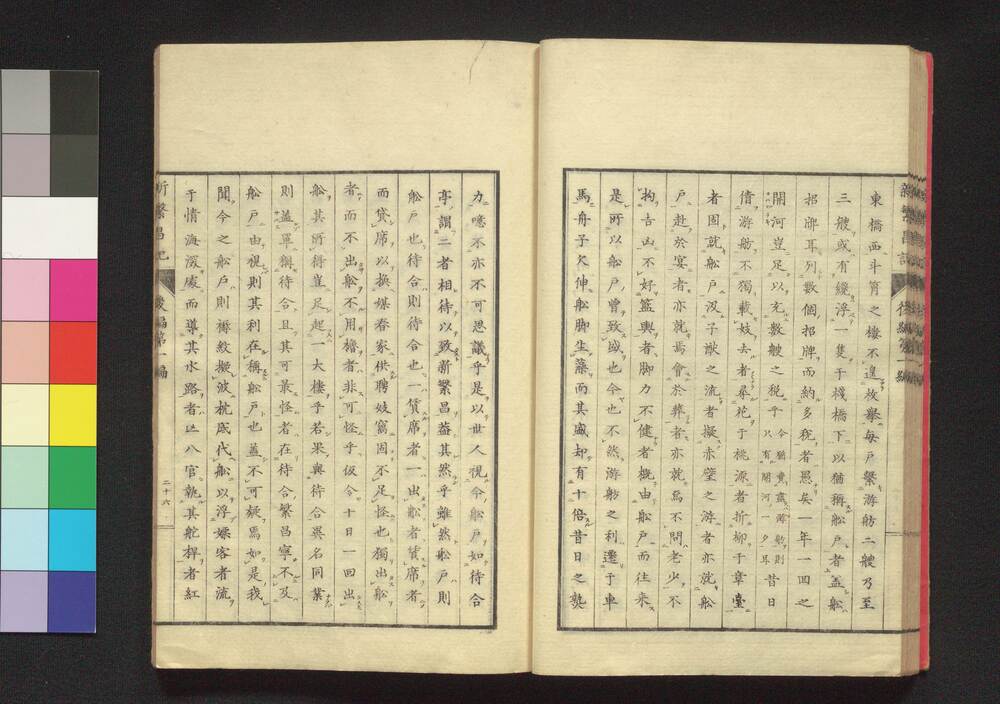 東橋西斗筲之樓不遑枚擧每戶繫游舫二艘乃至
三艘或有纔浮一隻于棧橋下以猶稱舩戶者蓋舩
招牌耳列數個招牌而納多稅者愚矣一年一回之
開河豈足以充數艘之稅乎 則昔日 只有開河一夕耳
僦游舫不獨載妓去者尋花于桃源者折柳于章臺
者固就舩戶汲子猷之流者擬赤壁之游者亦就舩
戶赴於宴者亦就焉會於葬者亦就焉不問老少不
拘吉凶不好籃輿者脚力不健者概由舩戶而往來
是所以舩戶曾致盛也今也不然游舫之利遷于車
馬舟子欠伸舩脚生藻而其盛却有十倍昔日之勢
力噫不亦不可思議乎是以世人視今舩戶如待合
亭謂二者相待以致新繁昌蓋其然乎雖然舩戶則
舩戶也待合則待合也一賃席者一出舩者賃席者
而貸席以換媒春家供聘妓窩固不足怪也獨出舩
者而不出舩不用櫓者非可怪乎仮令十日一回出
舩其所得豈足起一大樓乎若果與待合異名同業
則盍單稱待合且其可最怪者在待合繁昌寧不及
舩戶由視則其利在稱舩戶也蓋不可疑焉如是我
聞今之舩戶則褥紋擬波枕底代舩以浮嫖客者流
于情海深處而導其水路者亡八官執其舵桿者紅
新繁昌記 後編第一編 二十六